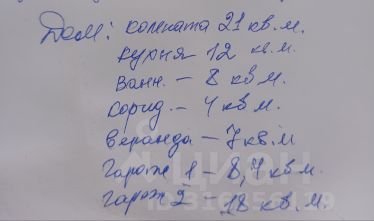 Дом: комната 21 кв.м.
кухня - 12 кв.м.
Ванн. - 8 кв м.
Корид. - 4 кв м.
Веранда - 7 кв.м
Гараж 1 - 8,4 кв м.
Гараж 2 - 18 кв.м.
ЦИАН